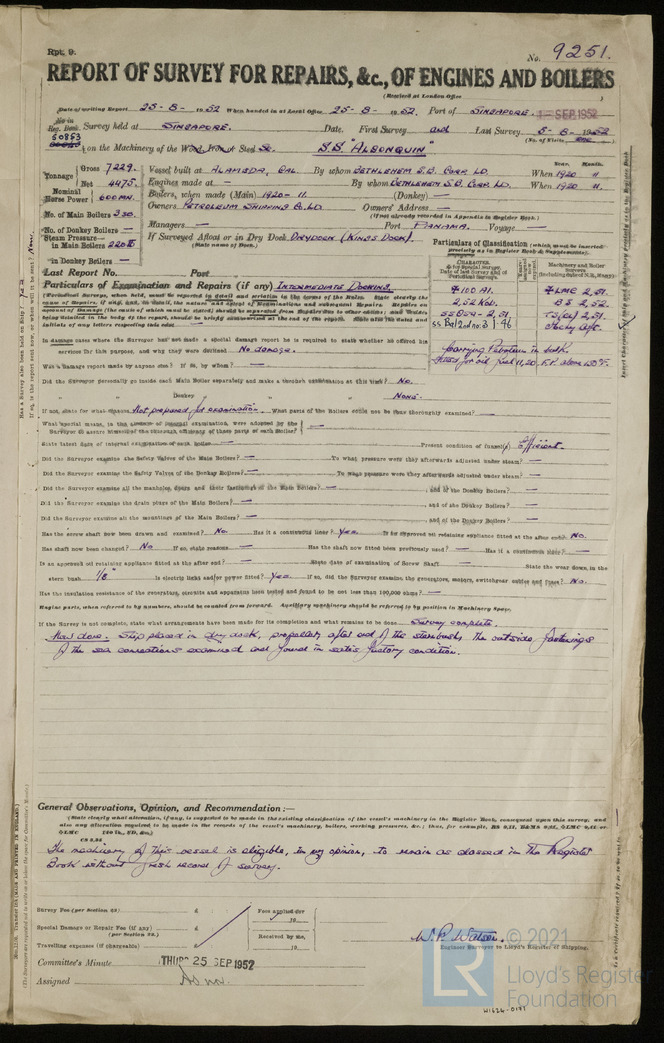 Rpt. 9.
No. 9251.
REPORT OF SURVEY FOR REPAIRS, &c., OF ENGINES AND BOILERS
(Received at London Office
Date of writing Report 25-8-1952 When handed in at Local Office 25-8-1952. Port of SINGAPORE. SEP 1952
No. in Reg. Book 50853 Survey held at SINGAPORE. Date, First Survey and Last Survey 5-8-1952
(No. of Visits one)
on the Machinery of the Wood, Iron or Steel Sc. S.S. "ALGONQUIN"
Tonnage Gross 7229. Net 4475.
Vessel built at ALAMEDA, CAL. By whom BETHLEHEM S.B. CORP. LD. When 1920 11
Engines made at — By whom BETHLEHEM S.B. CORP. LD. When 1920 11
Nominal Horse Power 600 MN.
Boilers, when made (Main) 1920-11. (Donkey) —
No. of Main Boilers 3 SB.
Owners PETROLEUM SHIPPING Co. LD Owners' Address —
(If not already recorded in Appendix to Register Book.)
No. of Donkey Boilers —
Managers — Port PANAMA. Voyage —
Steam Pressure in Main Boilers 220 lb
in Donkey Boilers —
If Surveyed Afloat or in Dry Dock DRYDOCK (KINGS DOCK).
(State name of Dock.)
Particulars of Classification (which must be inserted precisely as in Register Book & Supplements).
Last Report No. Port
Particulars of Examination and Repairs (if any) INTERMEDIATE DOCKING.
CHARACTER
Machinery and Boiler Surveys
100 A1.
2,52 Nov.
LMC 2,51.
BS 2,52.
Carrying Petroleum in bulk
Fitted for oil fuel 11,20 F.P. above 150°F.
In damage cases where the Surveyor has not made a special damage report he is required to state whether he offered his
services for this purpose, and why they were declined No damage.
Was a Damage report made by anyone else? If so, by whom? —
Did the Surveyor personally go inside each Main Boiler separately and make a thorough examination at this time? No.
" Donkey " " " None.
If not, state for what reasons Not prepared for examination. What parts of the Boilers could not be thus thoroughly examined? —
What special means, in the absence of internal examination, were adopted by the
Surveyor to assure himself of the thorough efficiency of those parts of each Boiler? —
State latest date of internal examination of each boiler — Present condition of funnel(s) Efficient.
Did the Surveyor examine the Safety Valves of the Main Boilers? — To what pressure were they afterwards adjusted under steam? —
Did the Surveyor examine the Safety Valves of the Donkey Boilers? — To what pressure were they afterwards adjusted under steam? —
Did the Surveyor examine all the manholes, doors and their fastenings of the Main Boilers? — and of the Donkey Boilers? —
Did the Surveyor examine the drain plugs of the Main Boilers? — and of the Donkey Boilers? —
Did the Surveyor examine all the mountings of the Main Boilers? — and of the Donkey Boilers? —
Has the screw shaft now been drawn and examined? No. Has it a continuous liner? Yes. Is an approved oil retaining appliance fitted at the after end? No.
Has shaft now been changed? No If so, state reasons — Has the shaft now fitted been previously used? — Has it a continuous liner? —
Is an approved oil retaining appliance fitted at the after end? — State date of examination of Screw Shaft — State the wear down in the
stern bush 1/8" Is electric light and/or power fitted? Yes. If so, did the Surveyor examine the generators, motors, switchgear cables and fuses? No.
Has the insulation resistance of the generators, circuits and apparatus been tested and found to be not less than 100,000 ohms? —
Engine parts, when referred to by numbers, should be counted from forward. Auxiliary machinery should be referred to by position in Machinery Space.
If the Survey is not complete, state what arrangements have been made for its completion and what remains to be done Survey complete.
Now done. Ship placed in dry dock, propeller, after end of the sternbush, the outside fastenings
of the sea connections examined and found in satisfactory condition.
General Observations, Opinion, and Recommendation:—
(State clearly what alteration, if any, is suggested to be made in the existing classification of the vessel's machinery in the Register Book, consequent upon this survey; and
also any alteration required to be made in the records of the vessel's machinery, boilers, working pressures, &c.; thus, for example,
The machinery of this vessel is eligible, in my opinion, to remain as classed in the Register
Book without fresh record of survey.
Survey Fee (per Section 23) £
Fees applied for 19
Special Damage or Repair Fee (if any) £
(per Section 23.)
Received by me, 19
Travelling expenses (if chargeable) £
W.P. Watson.
Engineer Surveyor to Lloyd's Register of Shipping.
Committee's Minute THUR 25 SEP 1952
Assigned As now.
© 2021
LR
Lloyd's Register
Foundation
W1626-0171